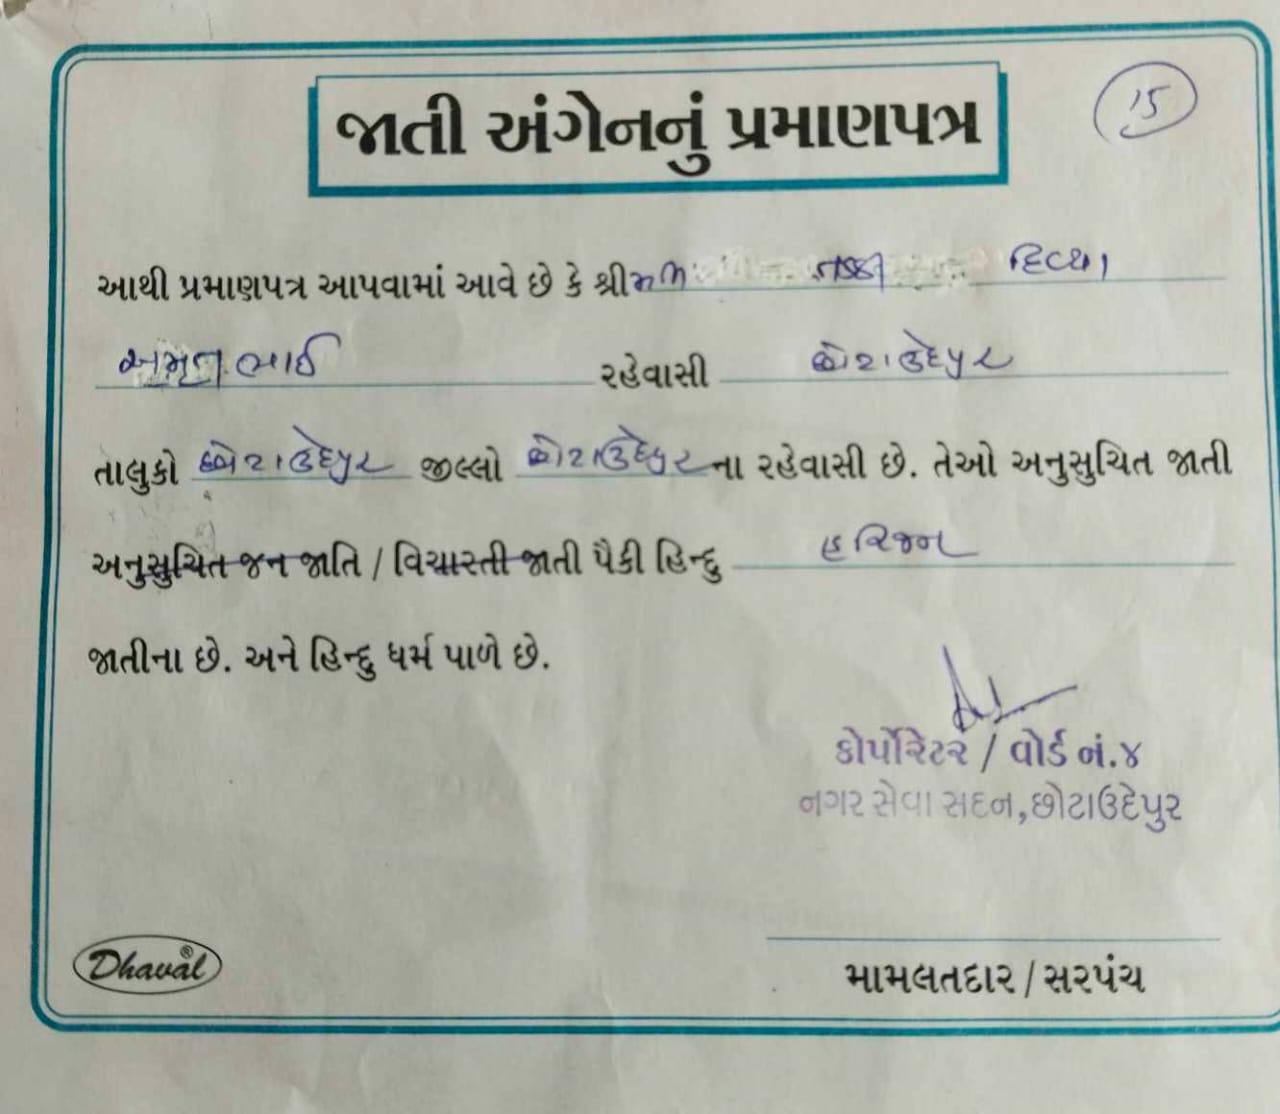 જાતી અંગેનનું પ્રમાણપત્ર
15
આથી પ્રમાણપત્ર આપવામાં આવે છે કે શ્રી દિવ્યા
અમૃતભાઈ રહેવાસી છોટાઉદેપુર
તાલુકો છોટાઉદેપુર જીલ્લો છોટાઉદેપુર ના રહેવાસી છે. તેઓ અનુસુચિત જાતી
અનુસુચિત જન જાતિ / વિચારતી જાતી પૈકી હિન્દુ હરિજન
જાતીના છે. અને હિન્દુ ધર્મ પાળે છે.
કોર્પોરેટર / વોર્ડ નં.૪
નગર સેવા સદન, છોટાઉદેપુર
Dhaval®
મામલતદાર / સરપંચ